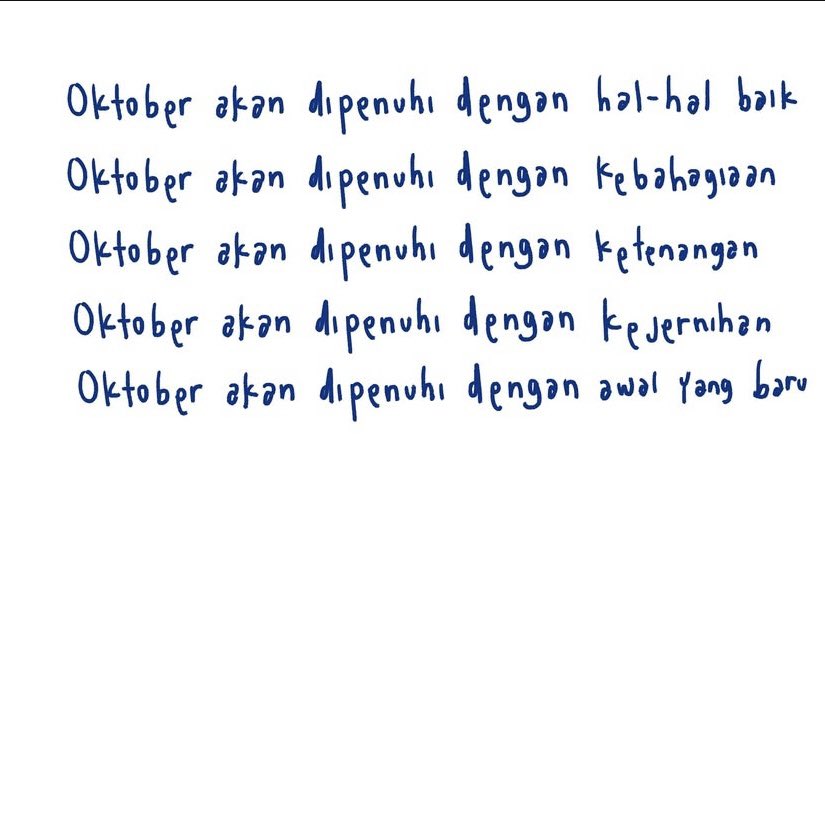 Oktober akan dipenuhi dengan hal-hal baik
Oktober akan dipenuhi dengan kebahagiaan
Oktober akan dipenuhi dengan ketenangan
Oktober akan dipenuhi dengan kejernihan
Oktober akan dipenuhi dengan awal yang baru